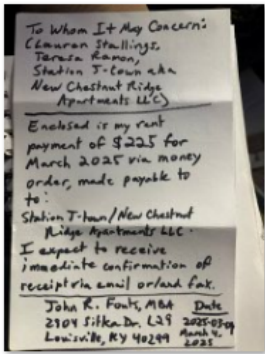 To Whom It May Concern:
(Lauran Stallings,
Teresa Ramon,
Station J-town aka
New Chestnut Ridge
Apartments LLC)
Enclosed is my rent
payment of $225 for
March 2025 via money
order, made payable to
to:
Station J-town/New Chestnut
Ridge Apartments LLC.
I expect to receive
immediate confirmation of
receipt via email or/and fax.
John R. Fouts, MBA Date
2104 Sitka Dr. L29 2025-03-04
Louisville, KY 40299 March 4,
2025